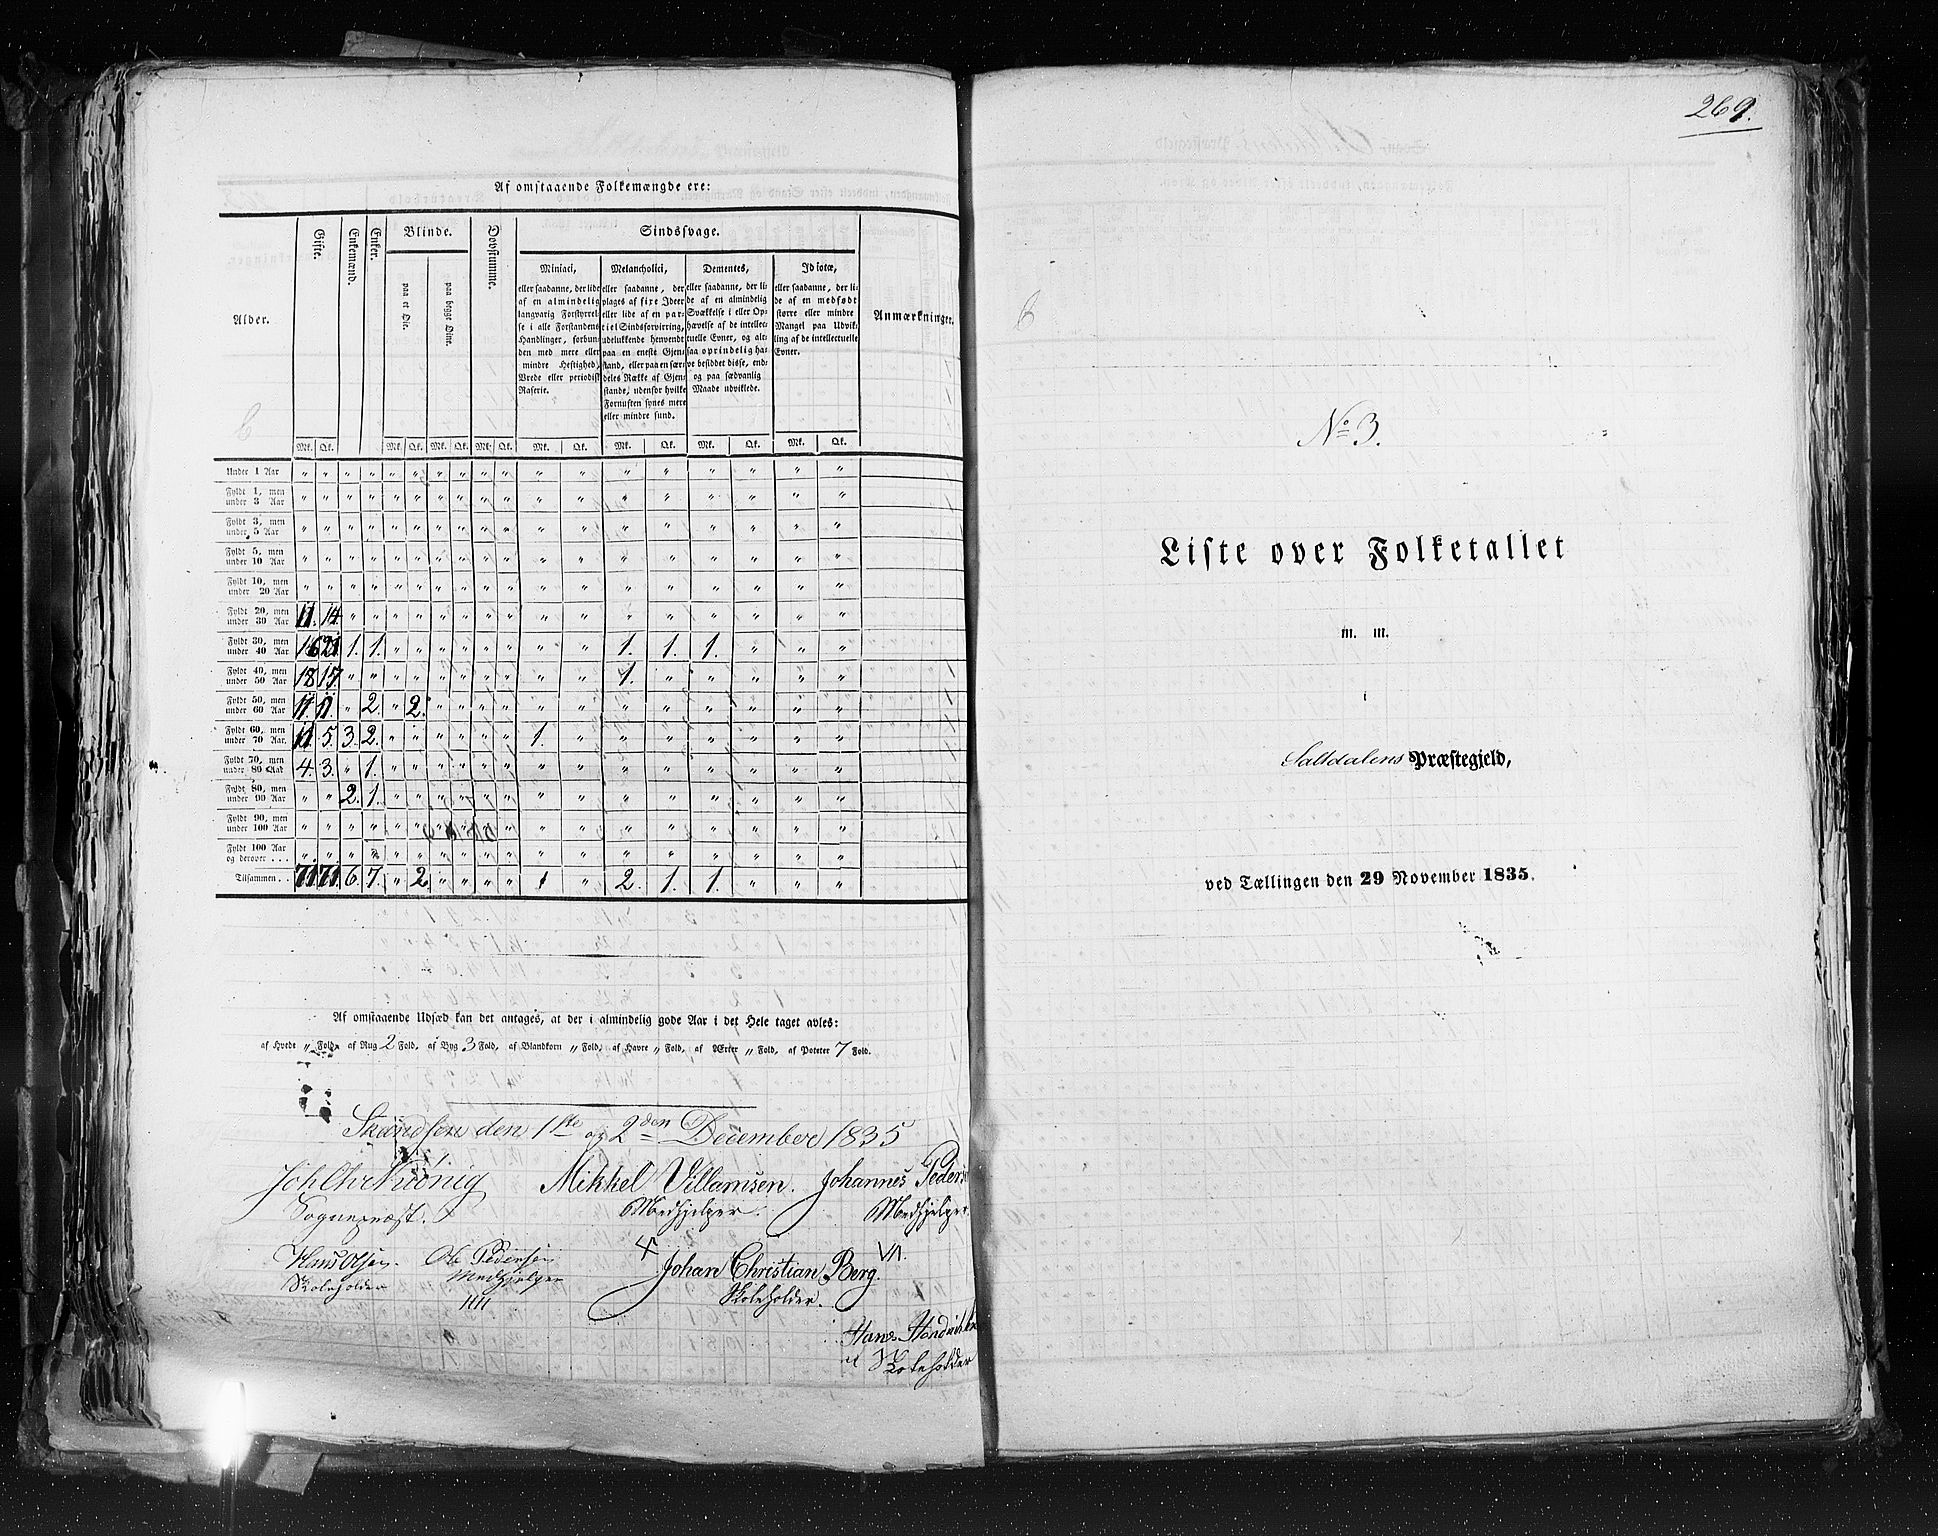 Af omstaaende Folkemængde ere:
Alder. Gifte. Enkemænd. Enker. Blinde. Døvstumme. Sindssvage. Anmærkninger.
paa et Øie. paa begge Øine.
Miniaci, eller saadanne, der lide af en almindelig langvarig Forstyrrelse i alle Forstandens Handlinger, forbunden med mere eller mindre Heftighed, Vrede eller periodisk Raserie.
Melancholici, eller saadanne, der plages af fixe Ideer eller lide af en partiel Sindsforvirring, udelukkende henvendt paa en eneste Gjenstand, eller paa en særdeles Række af Gjenstande, udenfor hvilke Fornuften synes mere eller mindre sund.
Dementes, eller saadanne, der lide af en almindelig Svækkelse i eller Ophævelse af de intellectuelle Evner, og altsaa oprindelig have besiddet disse, endog paa sædvanlig Maade udviklede.
Idiotæ, eller saadanne, der lide af en medfødt større eller mindre Mangel paa Udvikling af de intellectuelle Evner.
Mk. Qk. Mk. Qk. Mk. Qk. Mk. Qk. Mk. Qk. Mk. Qk. Mk. Qk. Mk. Qk.
Under 1 Aar " " " " " " " " " " " " " " " " " "
Fyldt 1, men under 3 Aar " " " " " " " " " " " " " " " " " "
Fyldt 3, men under 5 Aar " " " " " " " " " " " " " " " " " "
Fyldt 5, men under 10 Aar " " " " " " " " " " " " " " " " " "
Fyldt 10, men under 20 Aar " " " " " " " " " " " " " " " " " "
Fyldt 20, men under 30 Aar 11. 14. " " " " " " " " " " " " " " " "
Fyldt 30, men under 40 Aar 16 21 1. 1. " " " " " " " " 1. 1. 1. " " "
Fyldt 40, men under 50 Aar 18 17. " " " " " " " " " " 1. " " " " "
Fyldt 50, men under 60 Aar 11. 11. " 2. " 2. " " " " " " " " " " " "
Fyldt 60, men under 70 Aar. 11. 5. 3. 2. " " " " " " 1. " " " " " " "
Fyldt 70, men under 80 Aar 4. 3. " 1. " " " " " " " " " " " " " "
Fyldt 80, men under 90 Aar " " 2. 1. " " " " " " " " " " " " " "
Fyldt 90, men under 100 Aar " " " " " " " " " " " " " " " " " "
Fyldt 100 Aar og derover . . . " " " " " " " " " " " " " " " " " "
Tilsammen . . 71 71. 6. 7. " 2. " " " " 1 " 2. 1. 1. " " "
Af omstaaende Udsæd kan det antages, at der i almindelig gode Aar i det Hele taget avles:
af Hvede " Fold, af Rug 2 Fold, af Byg 3 Fold, af Blandkorn " Fold, af Havre " Fold, af Ærter " Fold, af Poteter 7 Fold.
den 1ste og 2den December 1835
Mikkel Villamsen. Johannes Peders
Sognepræst. Medhjelper. Medhjelper.
Hans Olsen. Ole Pedersen Johan Christian Berg.
Skoleholder Medhjelper Skoleholder.
Hans
Skoleholder
269.
No 3.
Liste over Folketallet
m. m.
i
Saltdalens Præstegjeld,
ved Tællingen den 29 November 1835.